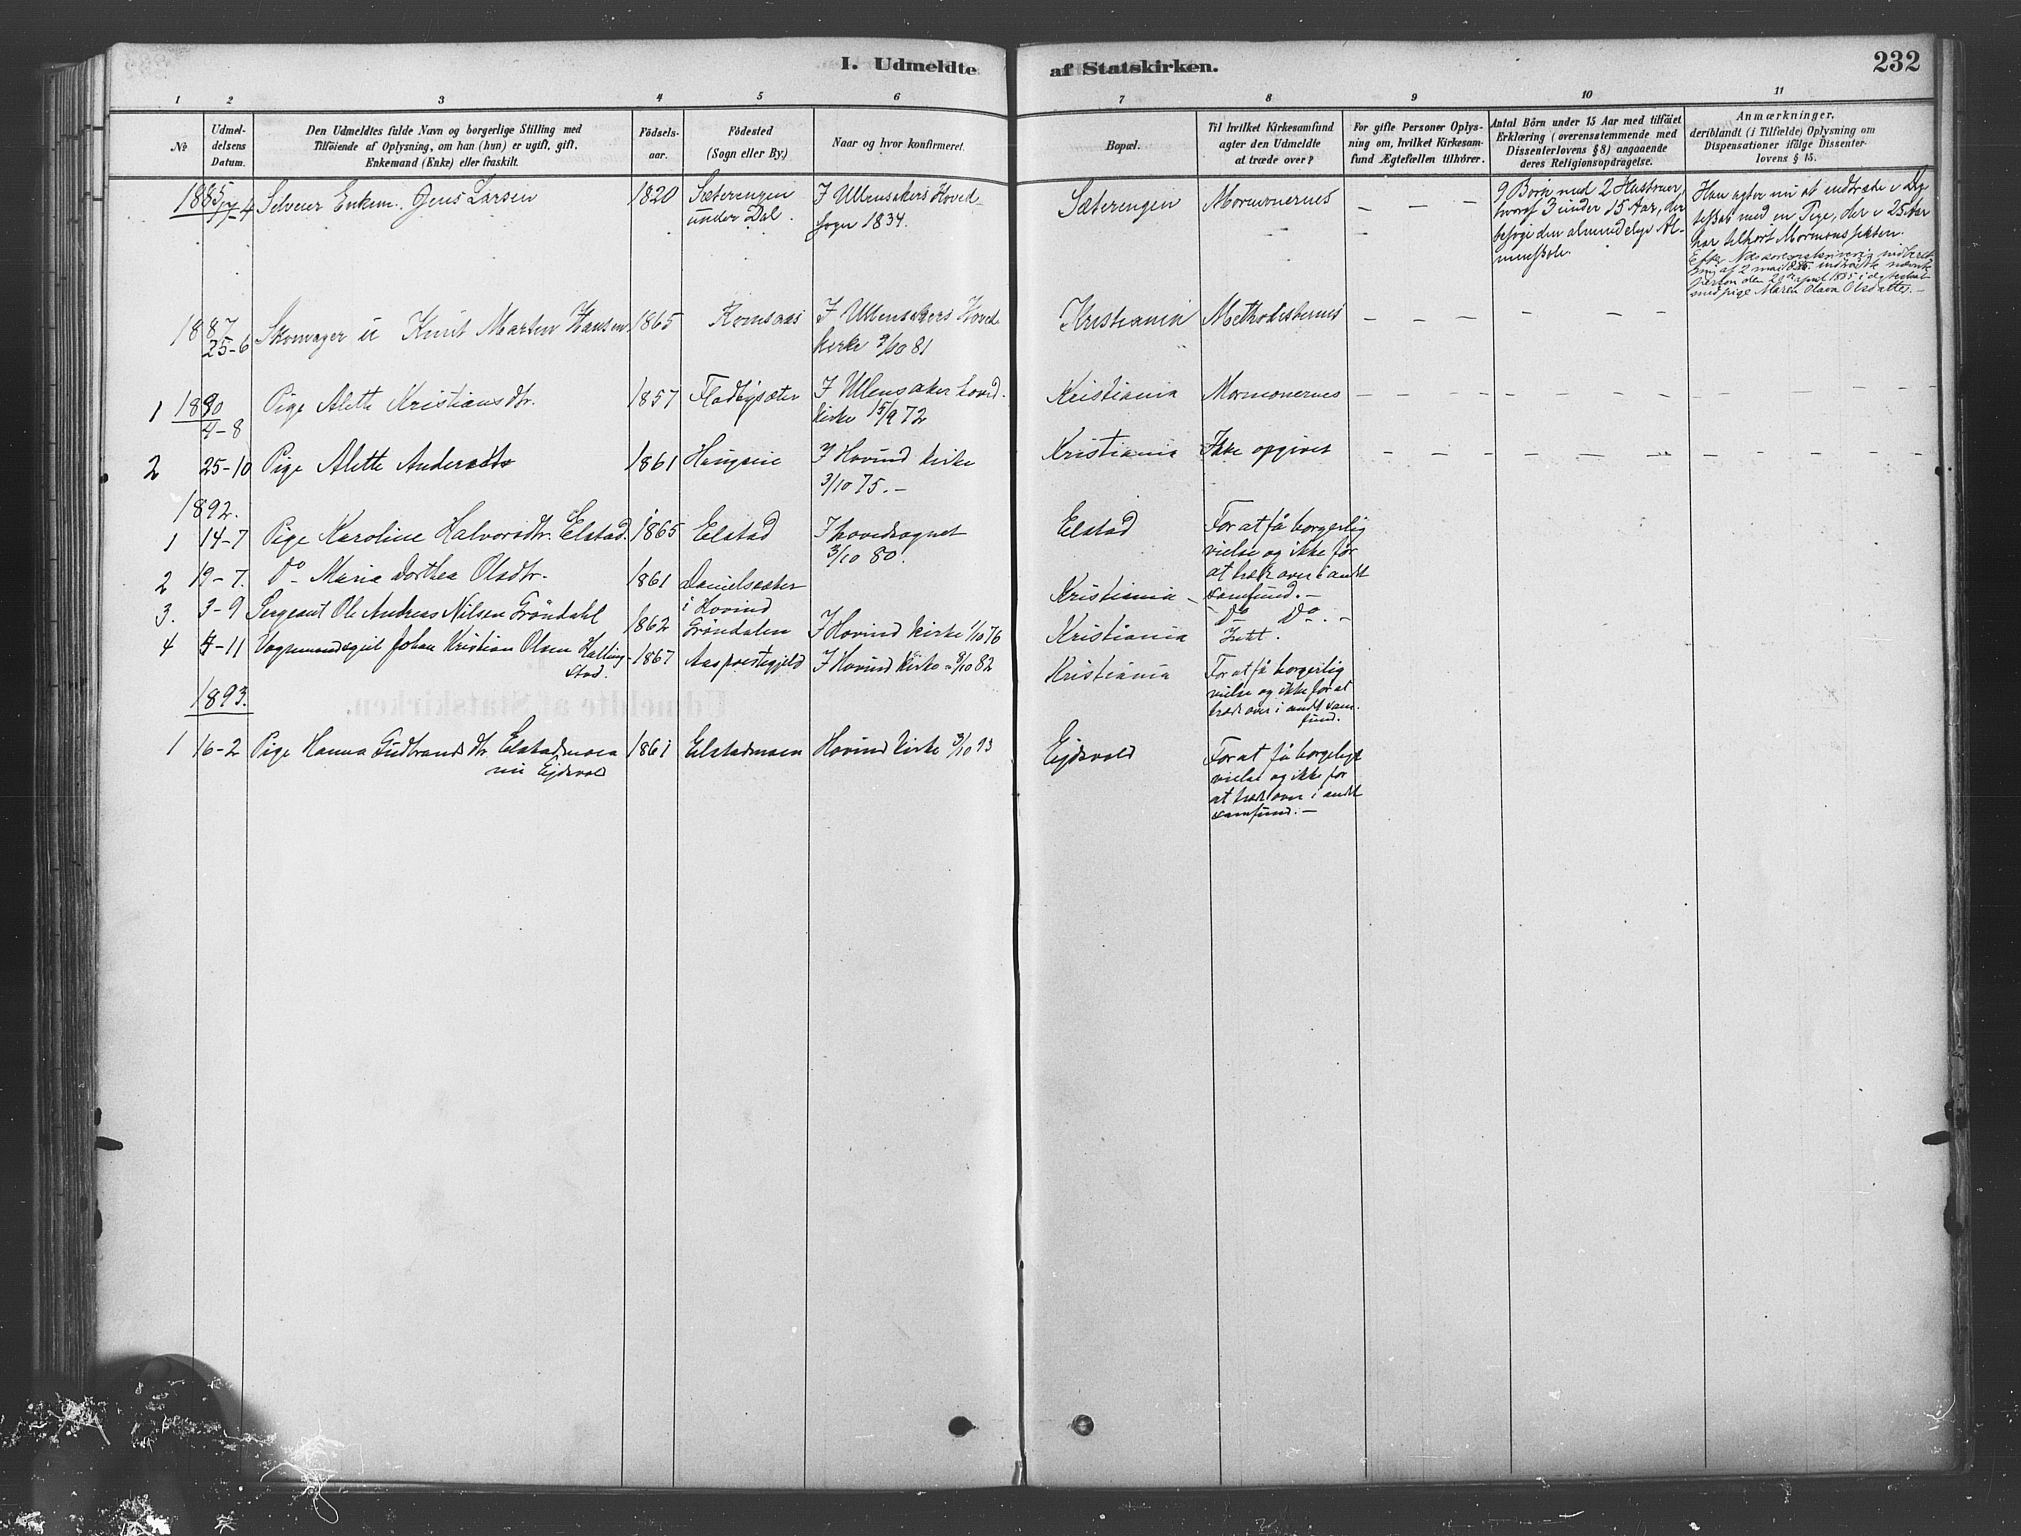 I. Udmeldte af Statskirken.
232
1 2 3 4 5 6 7 8 9 10 11
№
Udmel-
delsens
Datum.
Den Udmeldtes fulde Navn og borgerlige Stilling med
Tilföiende af Oplysning, om han (hun) er ugift, gift,
Enkemand (Enke) eller fraskilt.
Födsels-
aar.
Födested
(Sogn eller By.)
Naar og hvor konfirmeret.
Bopæl.
Til hvilket Kirkesamfund
agter den Udmeldte
at træde over?
For gifte Personer Oplys-
ning om, hvilket Kirkesam-
fund Ægtefællen tilhörer.
Antal Börn under 15 Aar med tilföiet
Erklæring (overensstemmende med
Dissenterlovens § 8) angaaende
deres Religionsopdragelse.
Anmærkninger,
deriblandt (i Tilfælde) Oplysning om
Dispensationer ifölge Dissenter-
lovens § 15.
1885
17-4 Selveier Enkem. Jens Larsen 1820
Sæterengen
under Dal.
I Ullensakers Hoved-
sogn 1834.
Sæterengen Mormonernes – – –
9 Börn med 2 Hustruer,
hvoraf 3 under 15 Aar, der
besöge den almindelige Al-
mueskole.
Han agter nu at indtræde i Æg-
teskab med en Pige, der i 25 Aar
har tilhört Mormonsekten.
med pige Maren Olava Olsdatter. –
1887
25-6 Skomager u Knut Martin Hansen 1865 Romsaas
I Ullensakers Hoved-
kirke 9/10 81
Kristiania Methodisternes – – – – – – –
1 1890
4-8 Pige Alette Kristiansdtr. 1857 Fladbysæter
I Ullensaker hoved-
kirke 15/9 72
Kristiania Mormonernes – – – – – – – – – – –
2 25-10 Pige Alette Andersdtr 1861
I Hovind kirke
3/10 75. –
Kristiania Ikke opgivet – – – – – – – – – –
1892.
1 14-7 Pige Karoline Halvorsdtr. Elstad. 1865 Elstad
I hovedsognet
3/10 80.
Elstad
For at få borgerlig
vielse og ikke for
at træde over i andt
samfund. –
2 19-7. Do Maria Dorthea Olsdtr. 1861
Danielsæter
i Hovind
Kristiania – – Do Do. –
3. 3-9 Sergeant Ole Andreas Nilsen Gröndahl 1862 Gröndalen I Hovind kirke 1/10 76
Kristiania
4 4-11 Vognmandsgut Johan Kristian Olsen Kalling-
stad.
1867 Aas prestegjeld I Hovind kirke 8/10 82
Kristiania
For at få borgerlig
vielse og ikke for at
træde over i andt sam-
fund.
1893.
1 16-2 Pige Hanna Gudbrandsdtr. Elstadmoen
nu Ejdsvold
1861 Elstadmoen Hovind kirke 3/10
Ejdsvold
For at få borgerlig
vielse og ikke for
at træde over i andt
samfund. –